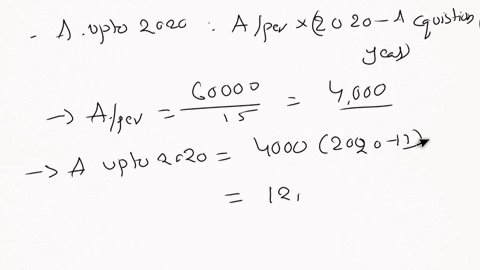 - A. upto 2020 : A/per × (2020 - Acquistion
year)
→ A/per = 60000 / 15 = 4,000
→ A upto 2020 = 4000 (2020-17)
= 12,